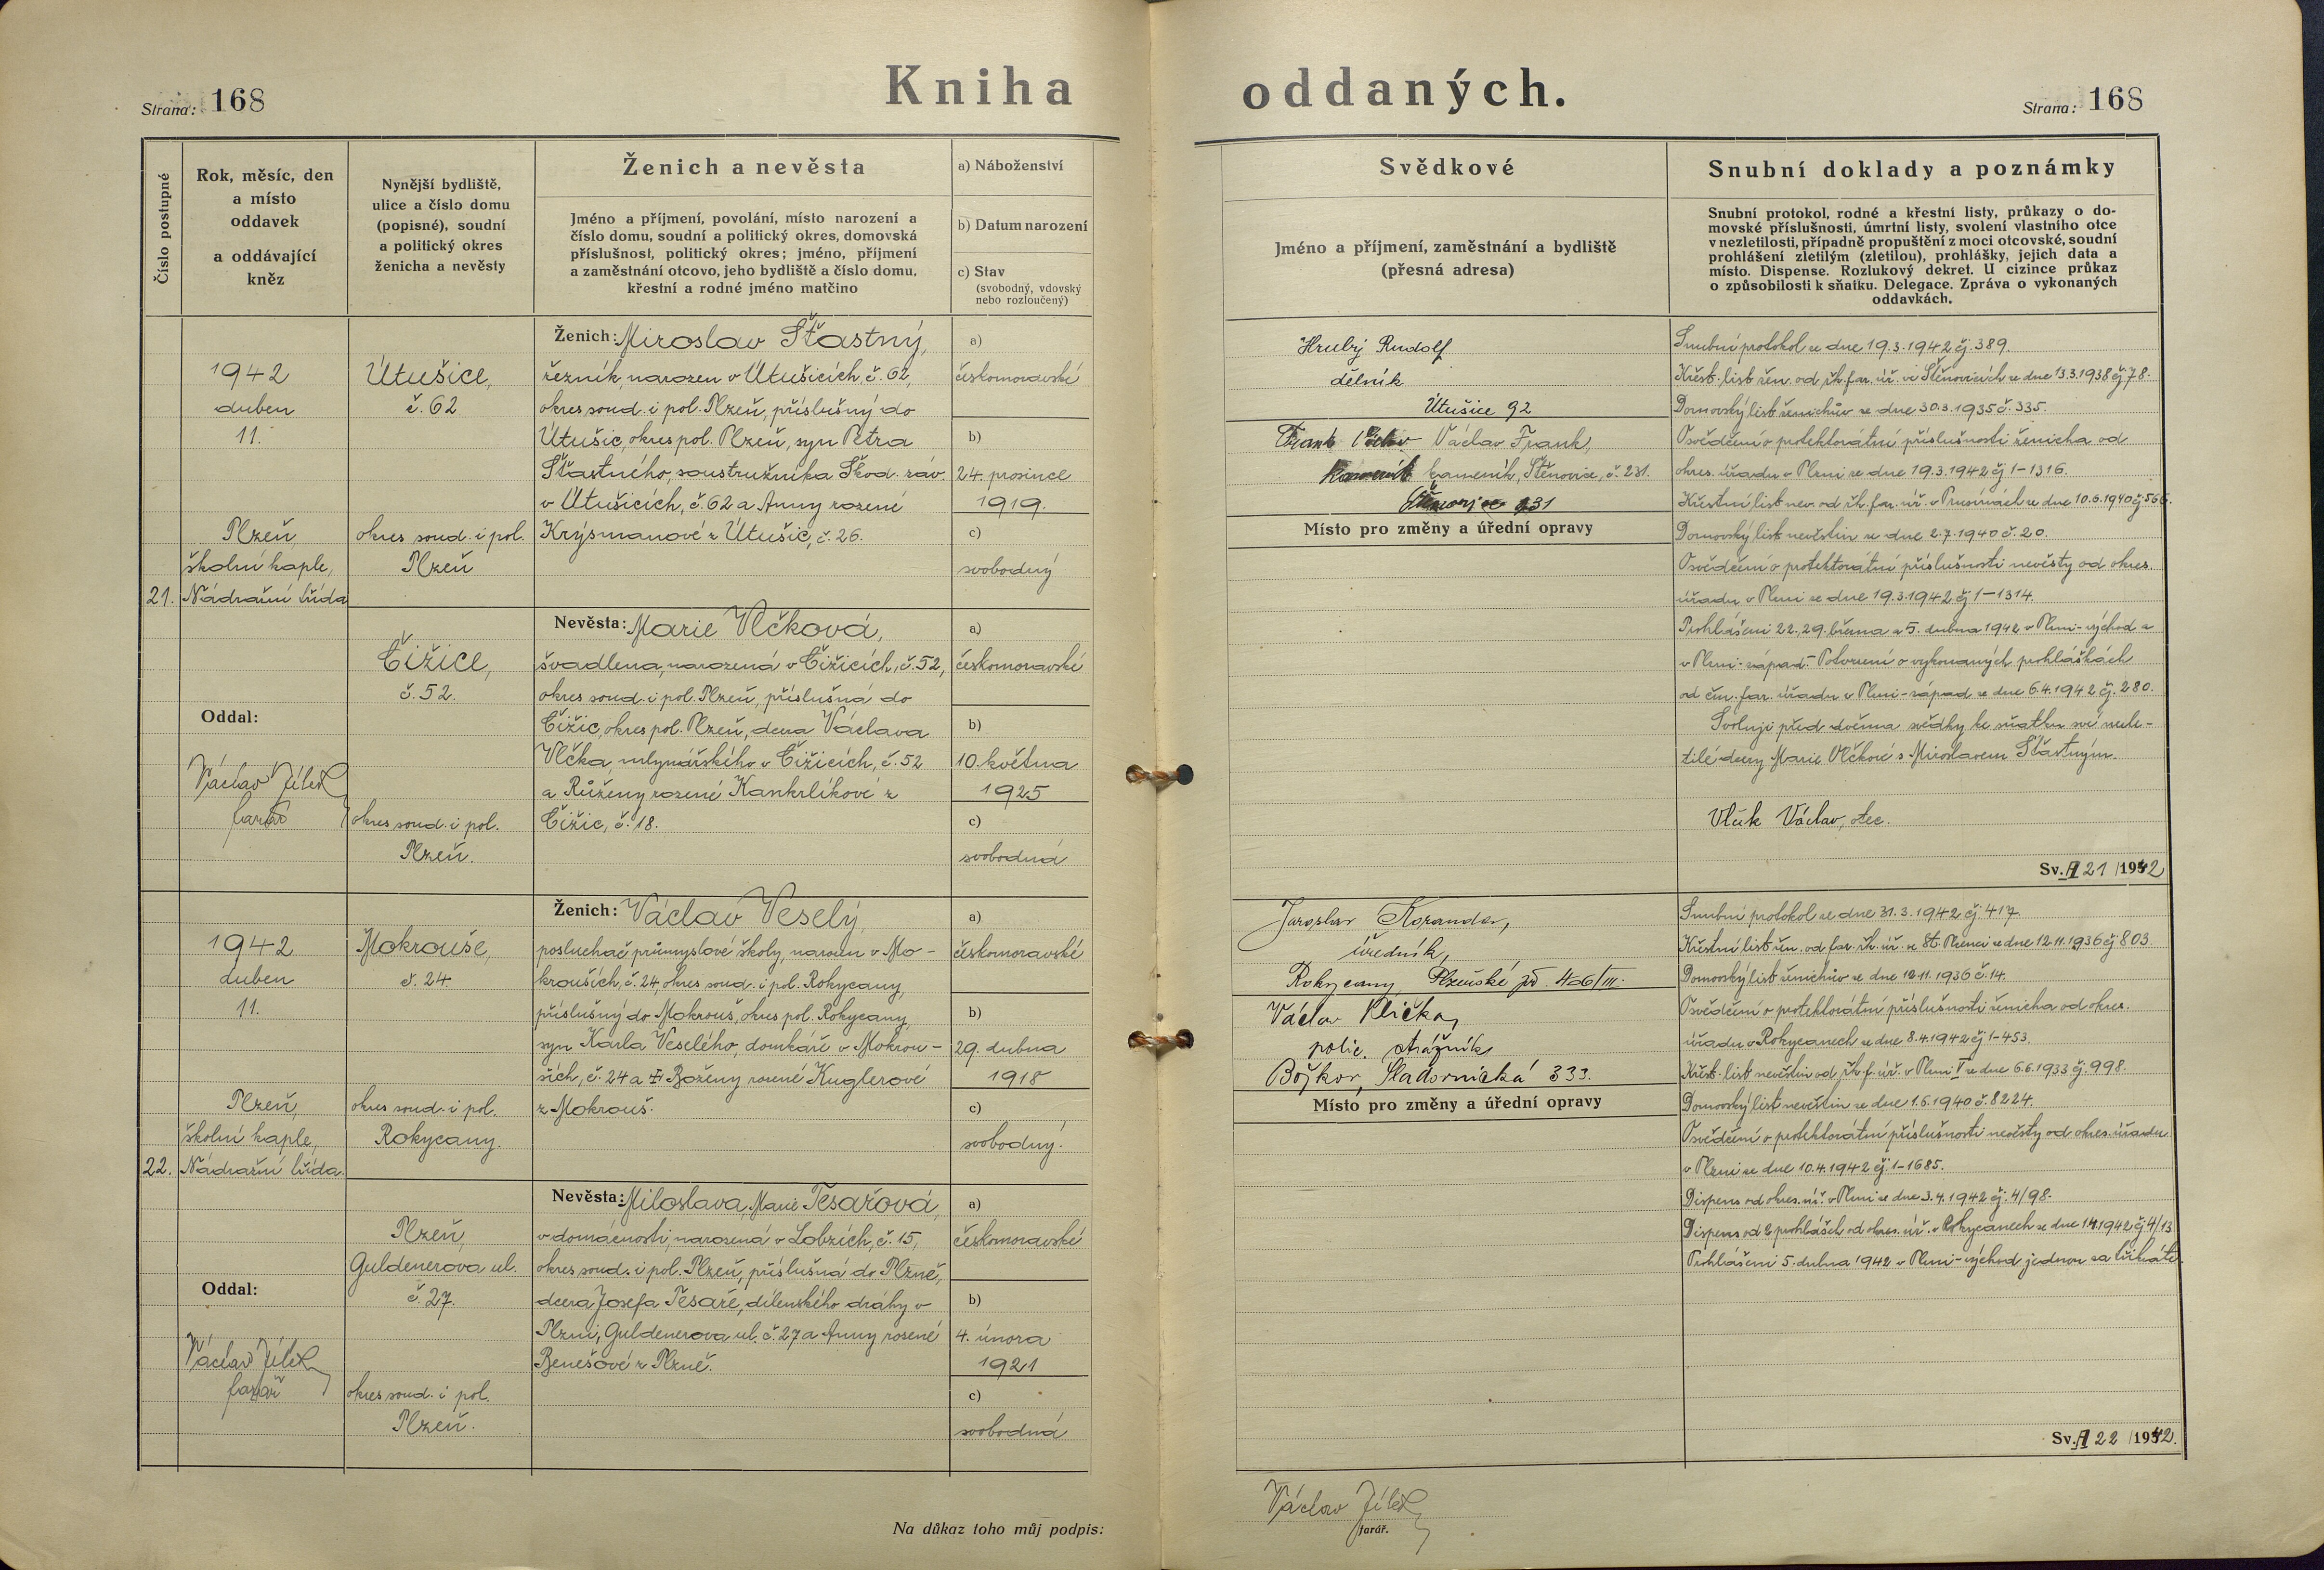 Strana: 168
Kniha
Číslo postupné
Rok, měsíc, den
a místo
oddavek
a oddávající
kněz
Nynější bydliště,
ulice a číslo domu
(popisné), soudní
a politický okres
ženicha a nevěsty
Ženich a nevěsta
Jméno a příjmení, povolání, místo narození a
číslo domu, soudní a politický okres, domovská
příslušnost, politický okres; jméno, příjmení
a zaměstnání otcovo, jeho bydliště a číslo domu,
křestní a rodné jméno matčino
a) Náboženství
b) Datum narození
c) Stav
(svobodný, vdovský
nebo rozloučený)
21.
1942
duben
11.
Plzeň,
školní kaple,
Nádražní třída
Oddal:
Václav Jílek
farář
Útušice,
č. 62
okres soud. i pol.
Plzeň
Ženich: Miroslav Šťastný,
řezník, narozen v Útušicích, č. 62,
okres soud. i pol. Plzeň, příslušný do
Útušic, okres pol. Plzeň, syn Petra
Šťastného, soustružníka Škod. záv.
v Útušicích, č. 62 a Anny rozené
Krýsmanové z Útušic, č. 26.
a)
českomoravské
b)
24. prosince
1919.
c)
svobodný
Čižice,
č. 52.
okres soud. i pol.
Plzeň.
Nevěsta: Marie Vlčková,
švadlena, narozená v Čižicích, č. 52,
okres soud. i pol. Plzeň, příslušná do
Čižic, okres pol. Plzeň, dcera Václava
Vlčka, mlynářského v Čižicích, č. 52
a Růženy rozené Kankrlíkové z
Čižic, č. 18.
a)
českomoravské
b)
10. května
1925
c)
svobodná
22.
1942
duben
11.
Plzeň,
školní kaple,
Nádražní třída.
Oddal:
Václav Jílek
farář
Mokrouše,
č. 24.
okres soud. i pol.
Rokycany.
Ženich: Václav Veselý,
posluchač průmyslové školy, narozen v Mo-
krouších, č. 24, okres soud. i pol. Rokycany,
příslušný do Mokrouš, okres pol. Rokycany,
syn Karla Veselého, domkáře v Mokrou-
ších, č. 24 a Boženy rozené Kuglerové
z Mokrouš.
a)
českomoravské
b)
29. dubna
1918
c)
svobodný.
Plzeň,
Guldenerova ul.
č. 27.
okres soud. i pol.
Plzeň.
Nevěsta: Miloslava, Marie Tesařová,
v domácnosti, narozená v Lobzích, č. 15,
okres soud. i pol. Plzeň, příslušná do Plzně,
dcera Josefa Tesaře, dílenského dráhy v
Plzni, Guldenerova ul. č. 27 a Anny rosené
Benešové z Plzně.
a)
českomoravské
b)
4. února
1921
c)
svobodná
Na důkaz toho můj podpis:
oddaných.
Strana: 168
Svědkové
Jméno a příjmení, zaměstnání a bydliště
(přesná adresa)
Snubní doklady a poznámky
Snubní protokol, rodné a křestní listy, průkazy o do-
movské příslušnosti, úmrtní listy, svolení vlastního otce
v nezletilosti, případně propuštění z moci otcovské, soudní
prohlášení zletilým (zletilou), prohlášky, jejich data a
místo. Dispense. Rozlukový dekret. U cizince průkaz
o způsobilosti k sňatku. Delegace. Zpráva o vykonaných
oddavkách.
Hrubý Rudolf
dělník
Útušice 92
Frank Václav Václav Frank,
kameník kameník, Štěnovice, č. 231.
Štěnovice 231
Místo pro změny a úřední opravy
Snubní protokol ze dne 19.3.1942 čj. 389.
Křest. list žen. od řk. far. úř. ve Štěnovicích ze dne 13.3.1938 čj. 78.
Domovský list ženichův ze dne 30.3.1935 č. 335.
Osvědčení o protektorátní příslušnosti ženicha od
okres. úřadu v Plzni ze dne 19.3.1942 čj 1-1316.
Křestní list nev. od řk. far. úř. v Prusinách ze dne 10.6.1940 čj. 566.
Domovský list nevěstin ze dne 2.7.1940 č. 20.
Osvědčení o protektorátní příslušnosti nevěsty od okres.
úřadu v Plzni ze dne 19.3.1942 čj 1-1314.
Prohlášeni 22., 29. března a 5. dubna 1942 v Plzni-východ a
v Plzni-západ. Potvrzení o vykonaných prohláškách
od čm. far. úřadu v Plzni-západ ze dne 6.4.1942 čj. 280.
Svoluji před dvěma svědky ke sňatku své nezle-
tilé dcery Marie Vlčkové s Miroslavem Šťastným.
Vlček Václav, otec.
Sv. A 21 /1942
Jaroslav Korandar,
úředník,
Rokycany, Plzeňské př. 466/III.
Václav Klička,
polic. strážník
Božkov, Sladovnická 333.
Místo pro změny a úřední opravy
Snubní protokol ze dne 31.3.1942 čj. 417.
Křestní list žen. od far. řk. úř. ve St. Plzenci ze dne 12.11.1936 čj 803.
Domovský list ženichův ze dne 12.11.1936 č. 14.
Osvědčení o protektorátní příslušnosti ženicha od okres.
úřadu v Rokycanech ze dne 8.4.1942 čj 1-453.
Křest. list nevěstin od řk. f. úř. v Plzni V ze dne 6.6.1933 čj. 998.
Domovský list nevěstin ze dne 1.6.1940 č. 8224.
Osvědčení o protektorátní příslušnosti nevěsty od okres. úřadu
v Plzni ze dne 10.4.1942 čj. 1-1685.
Dispens od okres. úř. v Plzni ze dne 3.4.1942 čj. 4/98.
Dispens od 2 prohlášek od okres. úř. v Rokycanech ze dne 1.4.1942 čj 4/13
Prohlášeni 5. dubna 1942 v Plzni-východ jednou za třikráte.
Sv. A 22 /1942.
Václav Jílek
farář.